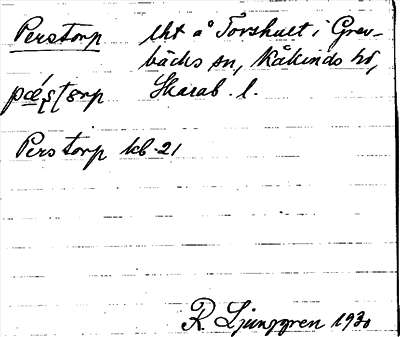 Perstorp lht å Torshult i Grev-
bäcks sn, Kåkinds hd,
pæ̀ʂʈɵrp Skarab. l.
Perstorp kb-21
R. Ljunggren 1930